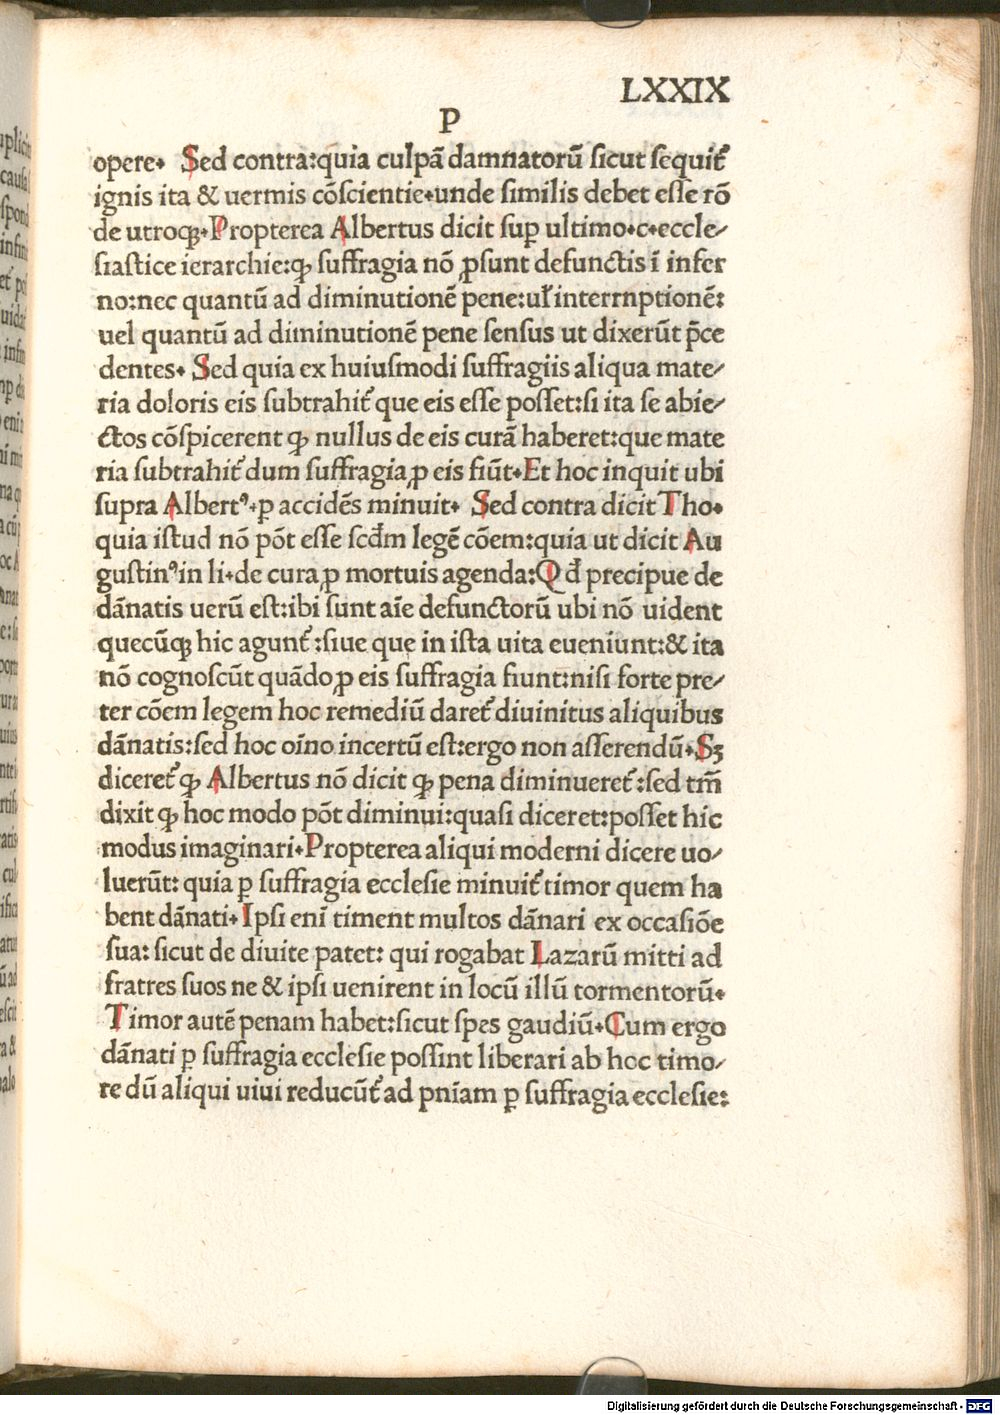 LXXIX
P
opere. Sed contra:quia culpā damnatorū sicut sequit᷑
ignis ita & uermis cōscientie.unde similis debet esse rō
de utroqꝫ.Propterea Albertus dicit sup ultimo.c.eccle/
siastice ierarchie:ꝙ suffragia nō ꝓsunt defunctis ī infer
no:nec quantū ad diminutionē pene:uł interrnptionē:
uel quantū ad diminutionē pene sensus ut dixerūt p̄ce
dentes. Sed quia ex huiusmodi suffragiis aliqua mate/
ria doloris eis subtrahit᷑ que eis esse posset:si ita se abie/
ctos cōspicerent ꝙ nullus de eis curā haberet:que mate
ria subtrahit᷑ dum suffragia ꝓ eis fiūt.Et hoc inquit ubi
supra Albertꝰ.ꝑ accidēs minuit. Sed contra dicit Tho.
quia istud nō pōt esse scđm legē cōem:quia ut dicit Au
gustinꝰ in li.de cura ꝓ mortuis agenda:Q đ precipue de
dānatis uerū est:ibi sunt aīe defunctorū ubi nō uident
quecūqꝫ hic agunt᷑:siue que in ista uita eueniunt:& ita
nō cognoscūt quādo ꝓ eis suffragia fiunt:nisi forte pre/
ter cōem legem hoc remediū daret᷑ diuinitus aliquibus
dānatis:sed hoc oīno incertū est:ergo non asserendū.Sꝫ
diceret᷑ ꝙ Albertus nō dicit ꝙ pena diminueret᷑:sed tm̄
dixit ꝙ hoc modo pōt diminui:quasi diceret:posset hic
modus imaginari.Propterea aliqui moderni dicere uo/
luerūt: quia ꝑ suffragia ecclesie minuit᷑ timor quem ha
bent dānati.Ipsi enī timent multos dānari ex occasiōe
sua: sicut de diuite patet: qui rogabat Lazarū mitti ad
fratres suos ne & ipsi uenirent in locū illū tormentorū.
Timor autē penam habet:sicut spes gaudiū.Cum ergo
dānati ꝑ suffragia ecclesie possint liberari ab hoc timo/
re dū aliqui uiui reducūt᷑ ad pn̄iam ꝑ suffragia ecclesie:
Digitalisierung gefördert durch die Deutsche Forschungsgemeinschaft - DFG